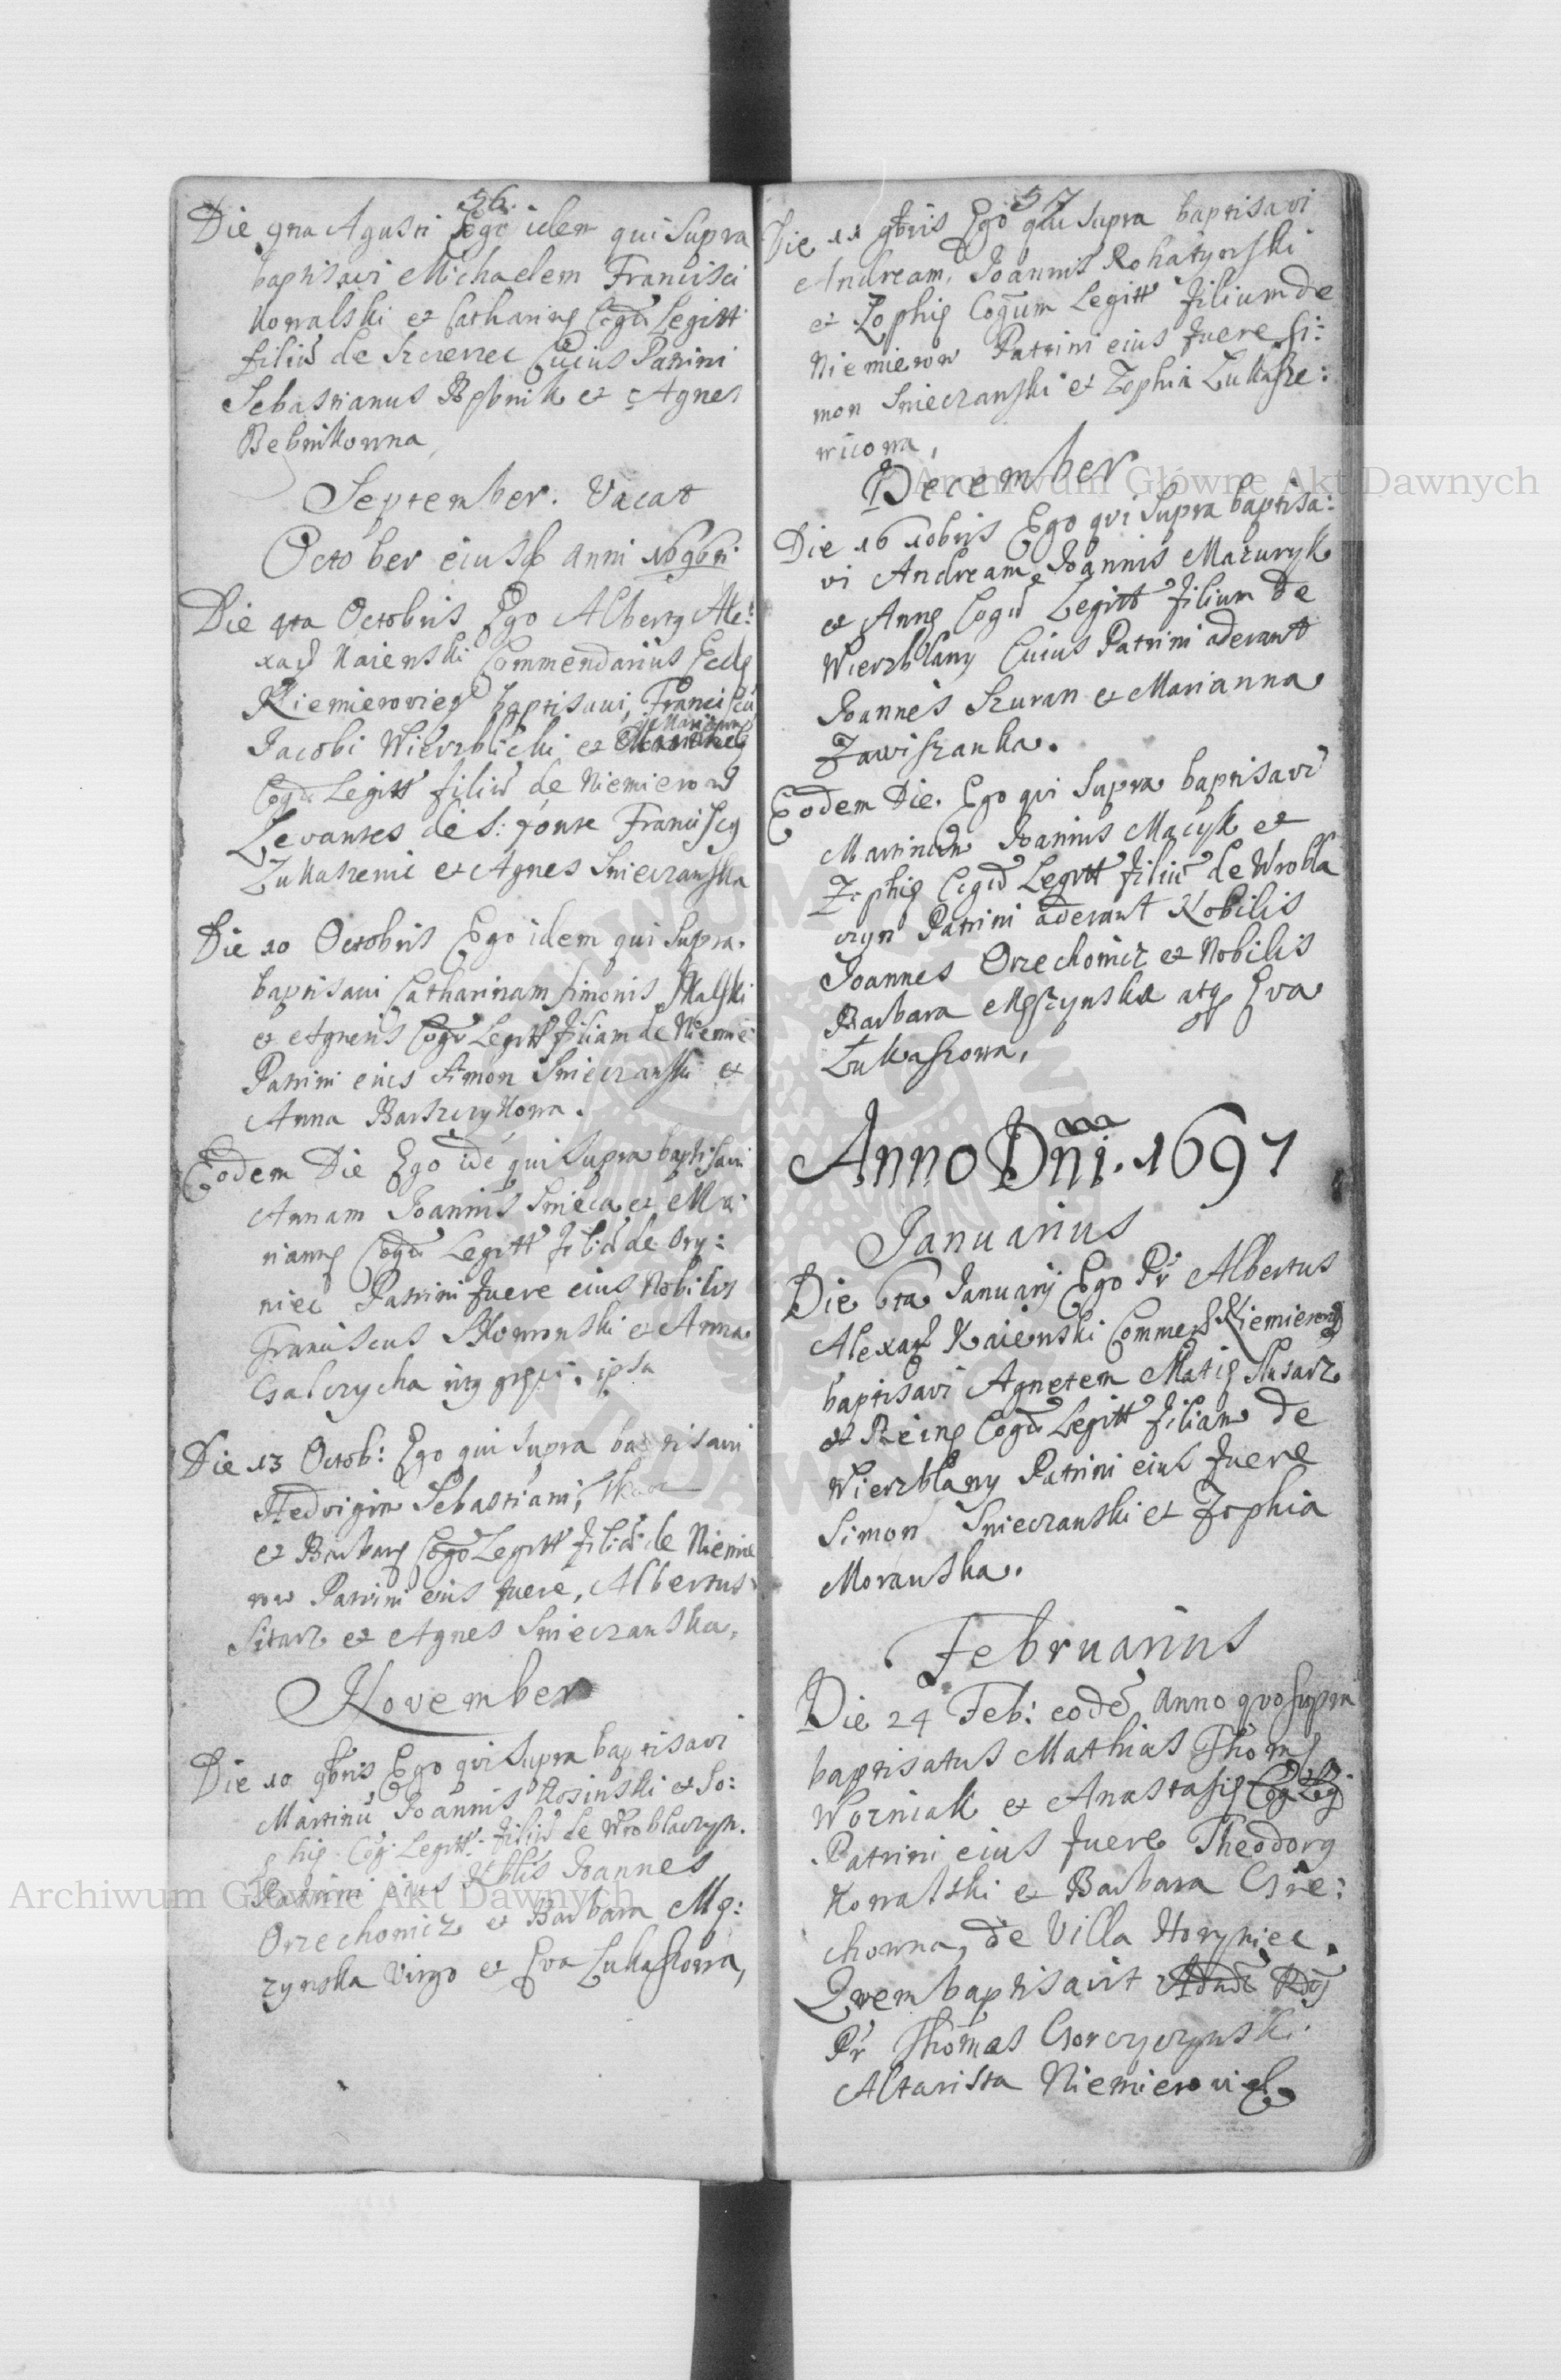 56.
Die 9na Agusti Ego idem qui supra
baptisavi Michaelem Francisci
Kowalski et Catharinę Cogũ Legitt
filiũ de Szczerzec Cuius Patrini
Sebastianus Bębnik et Agnes
Bebnikowna,
September. Vacat
October eiusd anni 1696ti
Die 4ta Octobris Ego Alberty Ale:
xad Kaienski Commendarius Eccle
Niemierovien baptisavi, Franciscũ
Jacobi Wierzbicki et Mariannę
Cogũ Legitt filiũ de Niemierow
Levantes de S: fonte Franciscy
Łukaszewic et Agnes Snieczanska
Die 10 Octobris Ego idem qui supra
baptisavi Catharinam Simonis Skalski
et Agnetis Cogũ Legitt filiam de Niemie
Patrini eius Simon Snieczanski et
Anna Barszczykowa.
Eodem Die Ego idẽ qui supra baptisavi
Annam Joannis Snieca et Ma:
riannę Cogũ Legitt filiã de Ory:
niec Patrini fuere eius Nobilis
Franciscus Skomonski et Anna
Galczycha
ipsa
Die 13 Octob: Ego qui supra baptisavi
Hedvigim Sebastiani,
et Barbarę Cogũ Legitt filiã de Niemie
row Patrini eius fuere, Albertus
Sitarz et Agnes Snieczanska,
November
Die 10 9bris Ego qvi supra baptisavi
Martinũ Joannis Rosinski et So:
phię Cog: Legitt: filiũ de Wroblaczyn.
Patrini eius Nblis Joannes
Orzechowicz et Barbara Mę:
czynska Virgo et Eva Lukaszowa,
57
Die 11 9bris Ego qui supra baptisavi
Andream, Joannis Rohatynski
et Zophię Cogum Legitt filium de
Niemierow Patrini eius fuere Si:
mon Snieczanski et Zophia Łukasze:
wicowa,
December
Die 16 10bris Ego qvi supra baptisa:
vi Andream Joannis Mazuryk
et Annę Cogũ Legitt filium de
Wierzblany Cuius Patrini aderant
Joannes Szuran et Marianna
Zawiszanka.
Eodem Die. Ego qvi supra baptisavi
Martinum Joannis Macyk et
Zophię Cogũ Legitt filiũ de Wrobla
czyn Patrini aderant Nobilis
Joannes Orzechowicz et Nobilis
Barbara Męczynska atq Eva
Łukaszowa,
Anno Dñi. 1697
Januarius
Die 6ta Januarij Ego Pr Albertus
Alexad Kaienski Commed Niemierow
baptisavi Agnetem Matię Slusarz
et Reinę Cogũ Legitt filiam de
Wierzblany Patrini eius fuere
Simon Snieczanski et Zophia
Morawska.
Februarius
Die 24 Feb: eodẽ Anno qvo supra
baptisatus Mathias Thomę
Wozniak et Anastasię Cog Leg
Patrini eius fuere Theodory
Kowalski et Barbara Gre:
chowna, de Villa Horyniec.
Qvem baptisavit
Pr Thomas Gorczyczynski
Altarista Niemierovien
Archiwum Główne Akt Dawnych
Archiwum Główne Akt Dawnych
ARCHIWUM GŁÓWNE AKT DAWNYCH